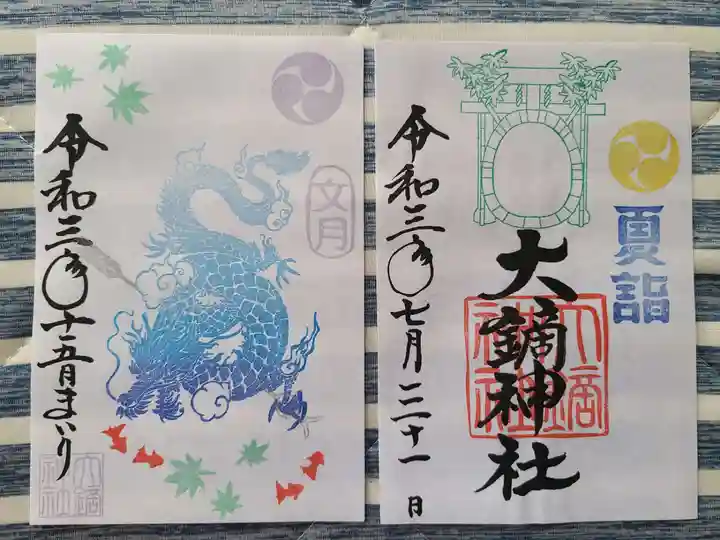 文月
令和三年十五日まいり
大鏑神社
夏詣
大鏑神社
令和三年七月三十一日